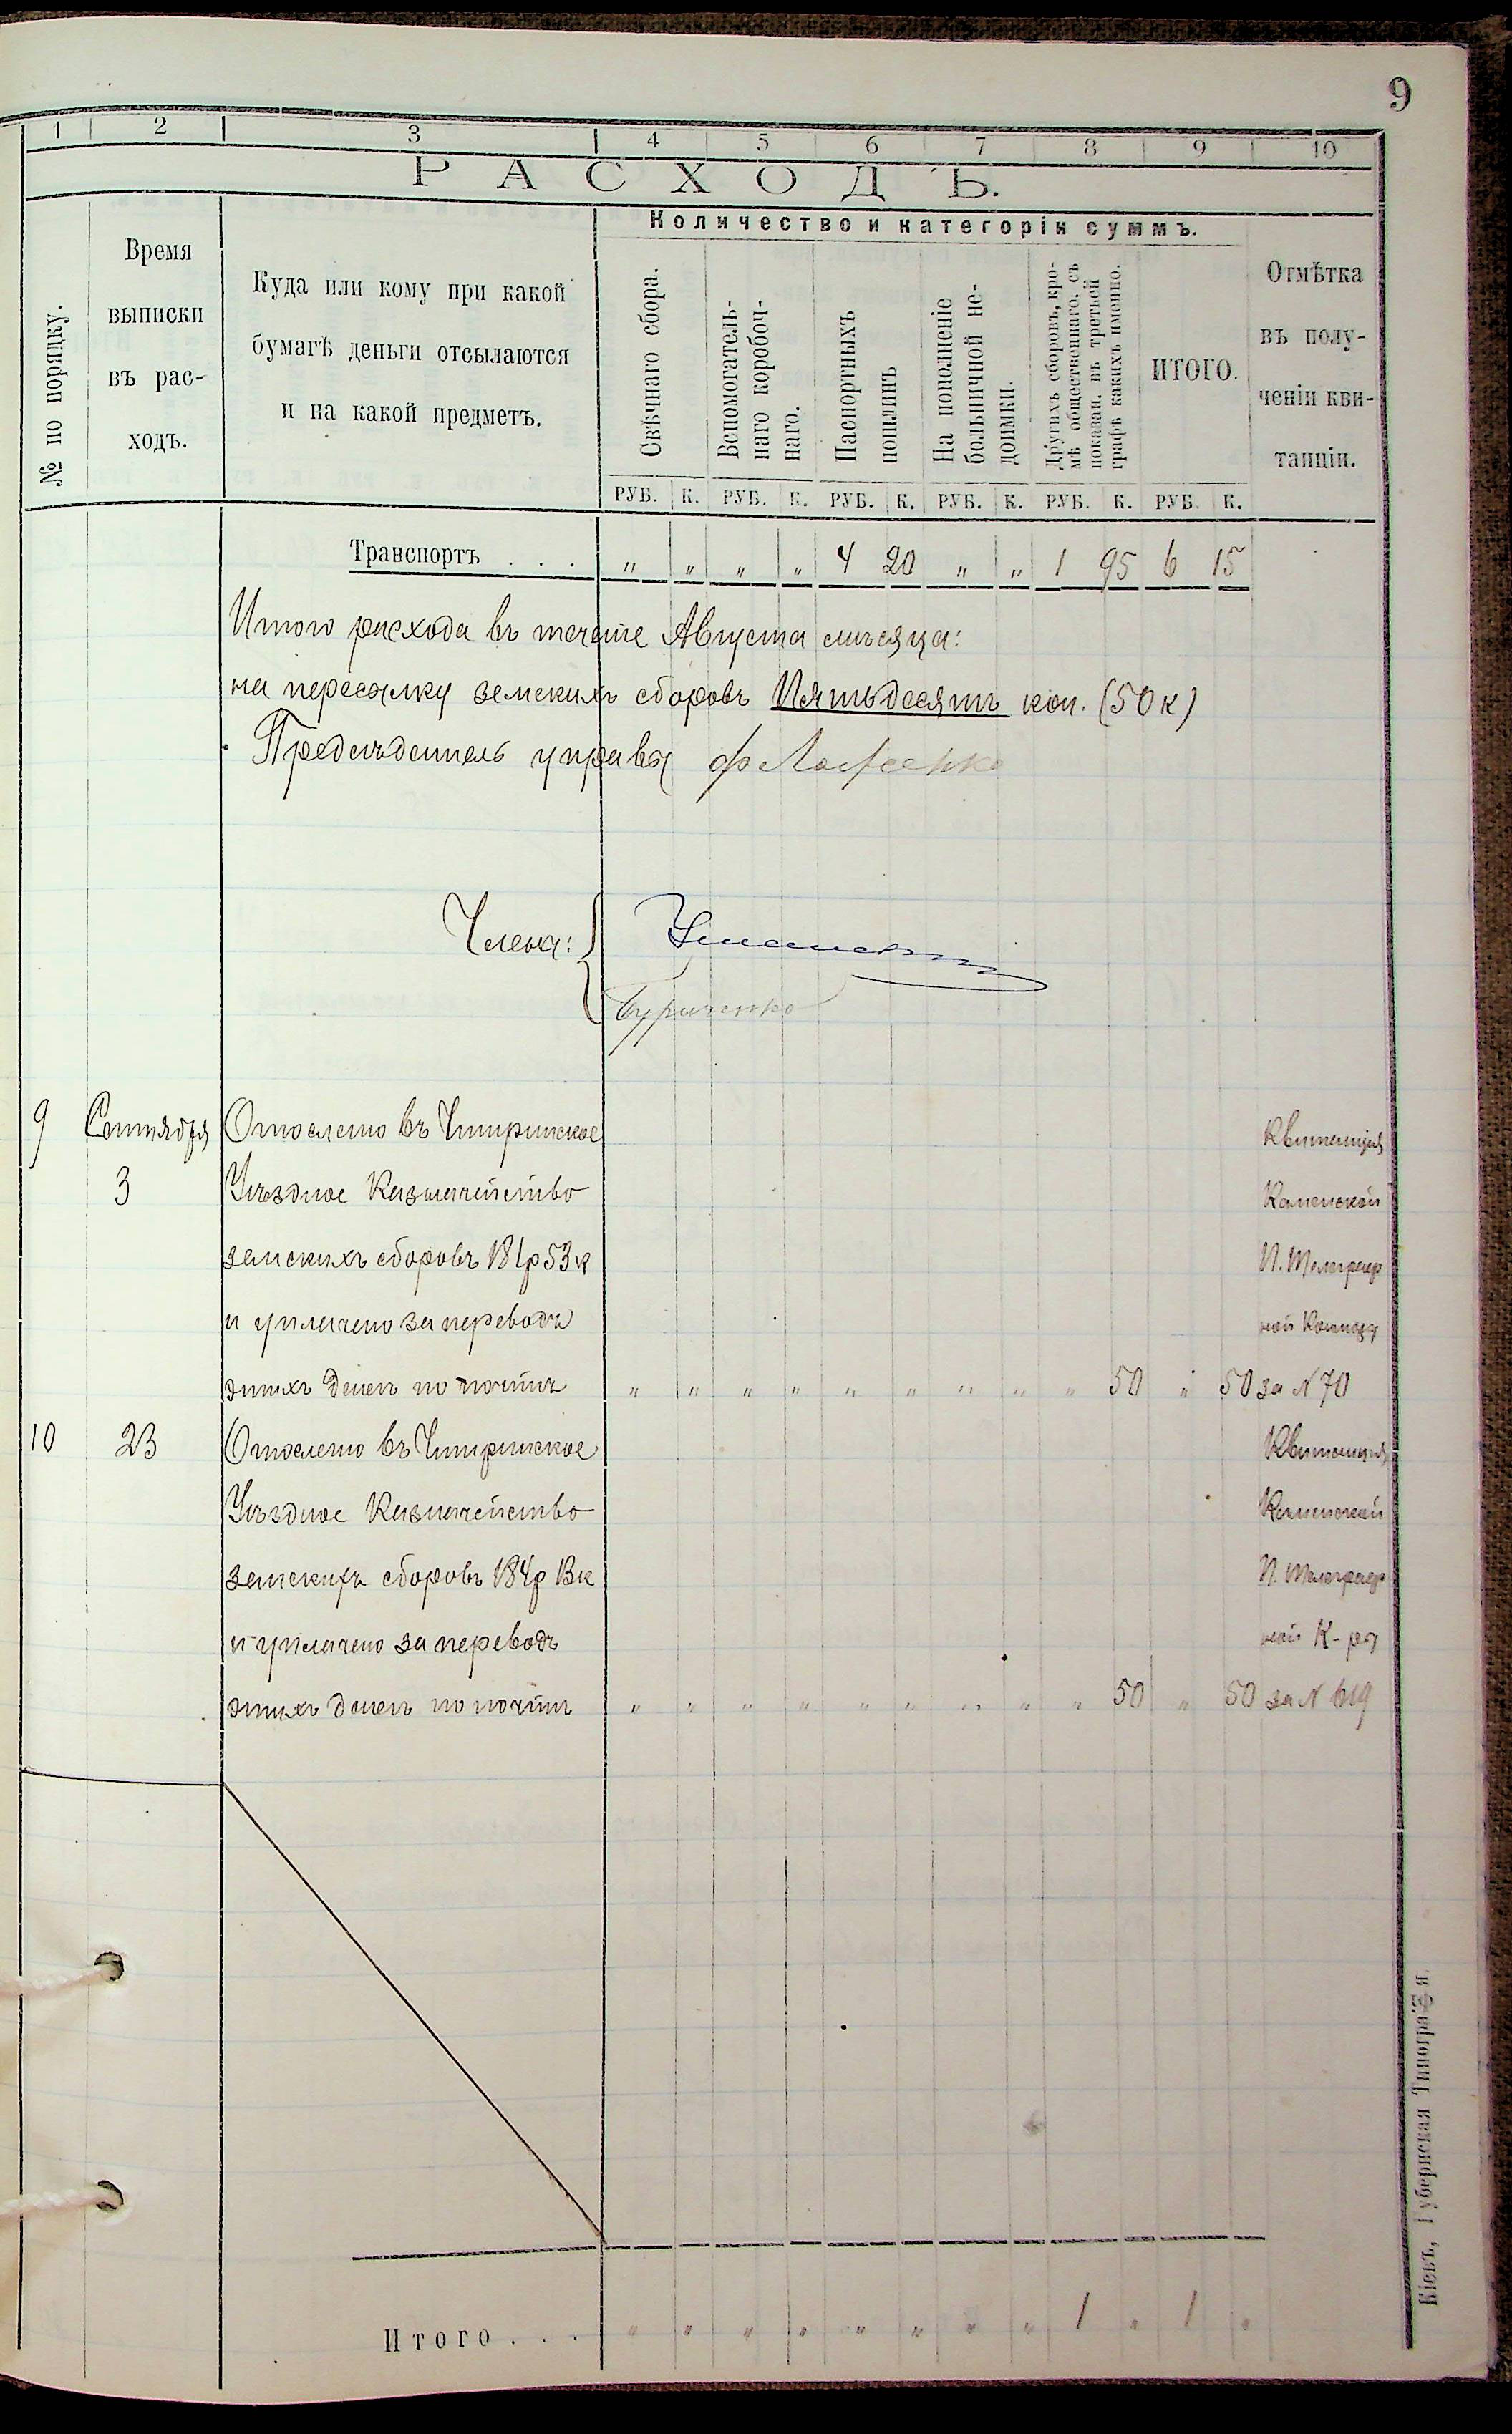 9
1 2 3 4 5 6 7 8 9 10
РАСХОДЪ.
№ по порядку.
Время
выписки
въ рас-
ходъ.
Куда или кому при какой
бумагѣ деньги отсылаются
и на какой предметъ.
Количество и категоріи суммъ.
Свѣчнаго сбора.
Вспомогатель-
наго коробоч-
наго.
Паспортныхъ
пошлинъ
На пополненіе
больничной не-
доимки.
Другихъ сборовъ, кро-
мѣ общественнаго, съ
показан. въ третьей
графѣ какихъ именно.
ИТОГО.
Отмѣтка
въ полу-
ченіи кви-
танціи.
РУБ. К. РУБ. К. РУБ. К. РУБ. К. РУБ. К. РУБ. К.
Транспортъ . . . " " " " 4 20 " " 1 95 6 15
Итого расхода въ теченіе Августа мѣсяца:
на пересылку земскихъ сборовъ Пятьдесятъ коп. (50 к)
Предсѣдатель управы
Члены:
9 Сентября Отослано въ Чигиринское Квитанція
3 Уѣздное Казначейство Каменской
земскихъ сборовъ 181р 53к П. Телеграф
и уплачено за переводъ ной Конторы
этихъ денегъ по почтѣ " " " " " " " " " 50 " 50 за N 70
10 23 Отослано въ Чигиринское Квитанція
Уѣздное Казначейство Каменской
земскихъ сборовъ 184р 13к П. Телеграф
и уплачено за переводъ ной К-ры
этихъ денегъ по почтѣ " " " " " " " " " 50 " 50 за N 619
Итого . . . " " " " " " " " 1 " 1 "
Кіевъ, Губернская Типографія.